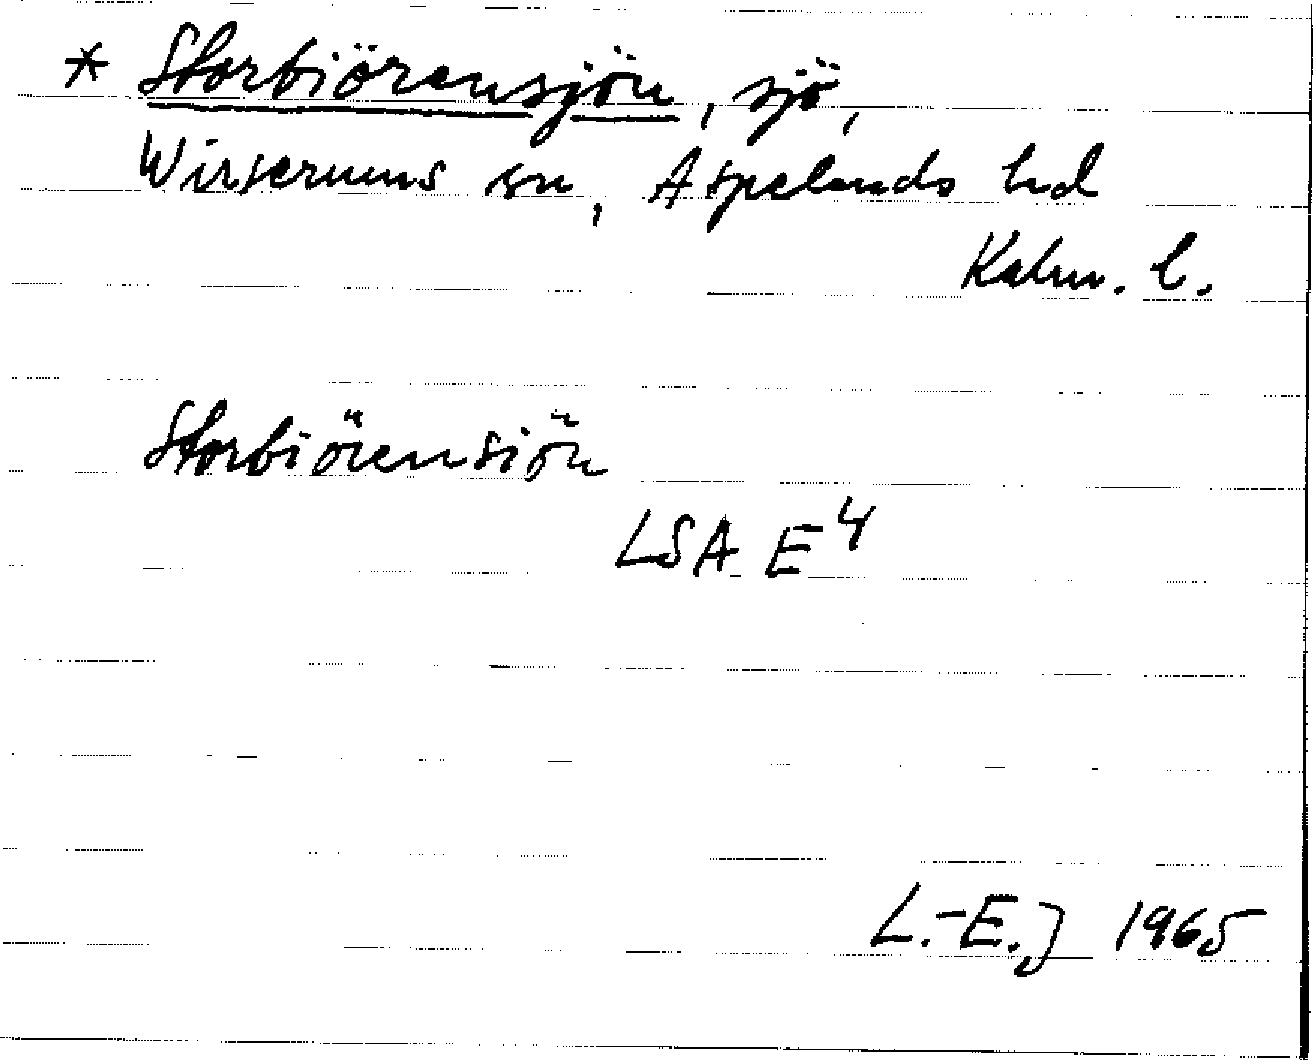 * Storbiörensjön, sjö,
Wirserums sn, Aspelands hd
Kalm. l.
Storbiörensiön
LSA E4
L.-E.J 1965